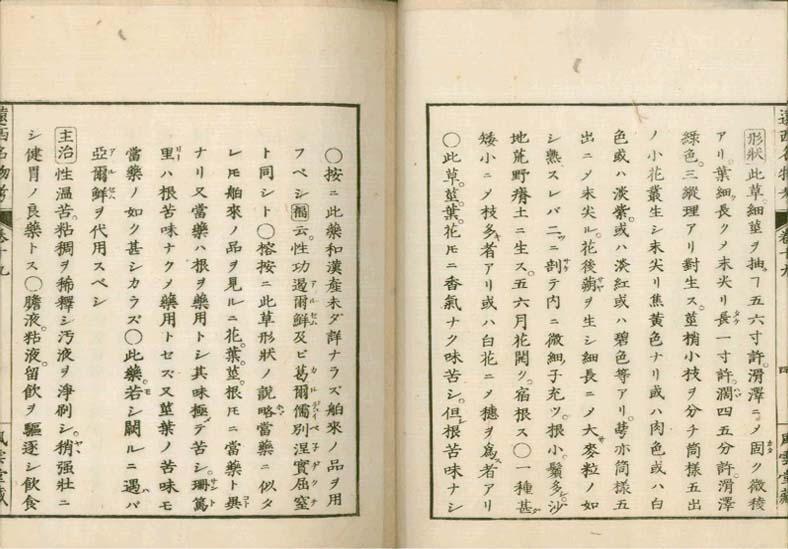 遠西名物考　四　風雲堂藏
形狀此草。細莖ヲ抽ヿ五六寸許。滑澤ニメ固ク微稜
アリ。葉細長クメ末尖リ長一寸許。濶四五分許。滑澤
綠色。三縱理アリ對生ス。莖梢小枝ヲ分チ筒樣五出
ノ小花叢生シ末尖リ焦黃色ナリ或ハ肉色或ハ白
色或ハ淡紫。或ハ淡紅或ハ碧色等アリ。萼亦筒樣五
出ニメ末尖ル。花後蒴ヲ生シ細長ニメ大麥粒ノ如
シ熟スレバ二ニ剖テ内ニ微細子充ツ。根小。鬚多。沙
地荒野瘠土ニ生ス。五六月花開ク。宿根ス〇一種甚
矮小ニメ枝多キ者アリ或ハ白花ニメ穗ヲ爲ス者アリ
〇此草。莖。葉。花。𪜈ニ香氣ナク味苦シ。但根苦味ナシ
〇按ニ此藥和漢產未ダ詳ナラズ舶來ノ品ヲ用
フベシ扇云。性功遏爾鮮及ビ葛爾儒別涅實屈窒
ト同シト〇榕按ニ此草形狀ノ說略當藥ニ似タ
レ𪜈舶來ノ品ヲ見ルニ花。葉。莖。根𪜈ニ當藥ト異
ナリ又當藥ハ根ヲ藥用トシ其味極テ苦シ。珊篤
里ハ根苦味ナクメ藥用トセズ又莖葉ノ苦味モ
當藥ノ如ク甚シカラズ〇此藥。若シ闕ルニ遇バ
亞爾鮮ヲ代用スベシ
主治性溫苦。粘稠ヲ稀釋シ汚液ヲ淨刷シ。稍强壯ニ
シ健胃ノ良藥トス〇膽液。粘液。留飮ヲ驅逐シ飮食
遠西名物考　卷十九　風雲堂藏